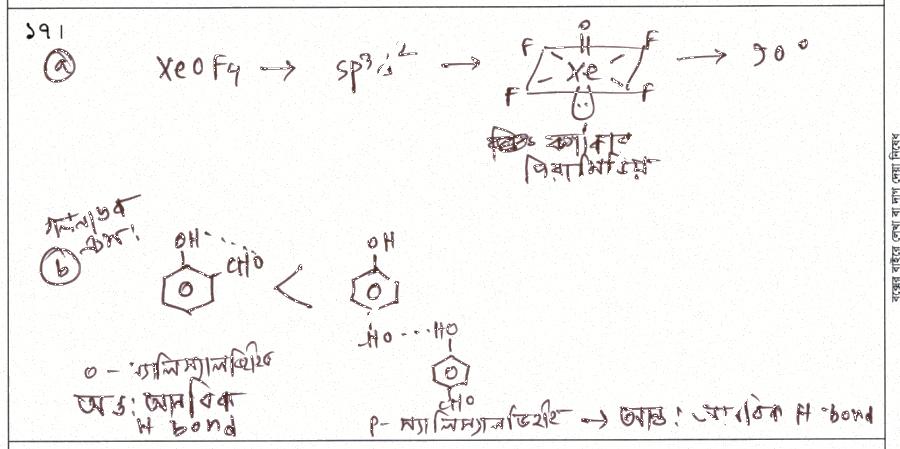 ১৭।
(a) XeOF4 → sp³d² → O F F Xe F F → 90°
বর্গাকার
পিরামিডীয়
গলনাঙ্ক
ক্রম:
(b) OH CHO < OH
HO HO
CHO
o- স্যালিস্যালডিহাইড
অন্ত: আনবিক
H bond
p- স্যালিস্যালডিহাইড → আন্ত: আনবিক H bond
বক্সের বাইরে লেখা বা দাগ দেয়া নিষেধ